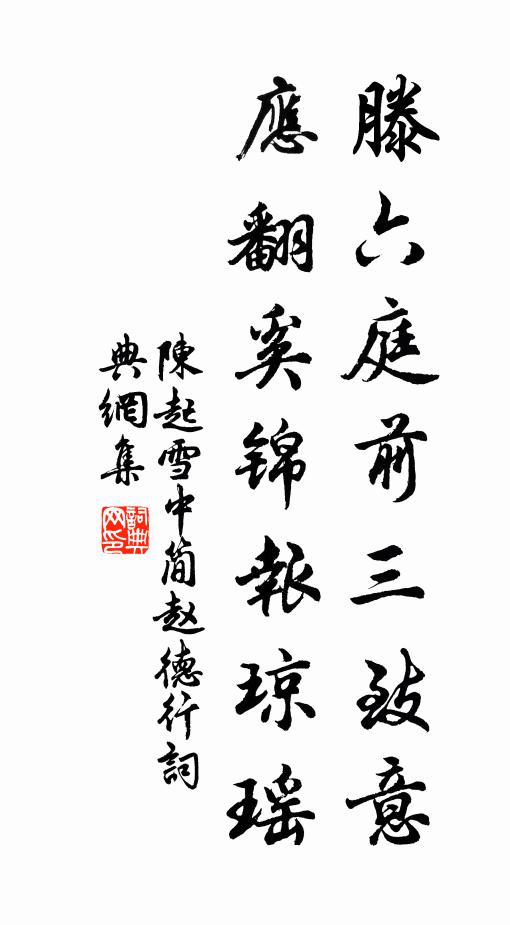 滕六庭前三致意
應翻奚錦報琼瑶
陳起雪中简赵德行詞
典網集
詞典
网印